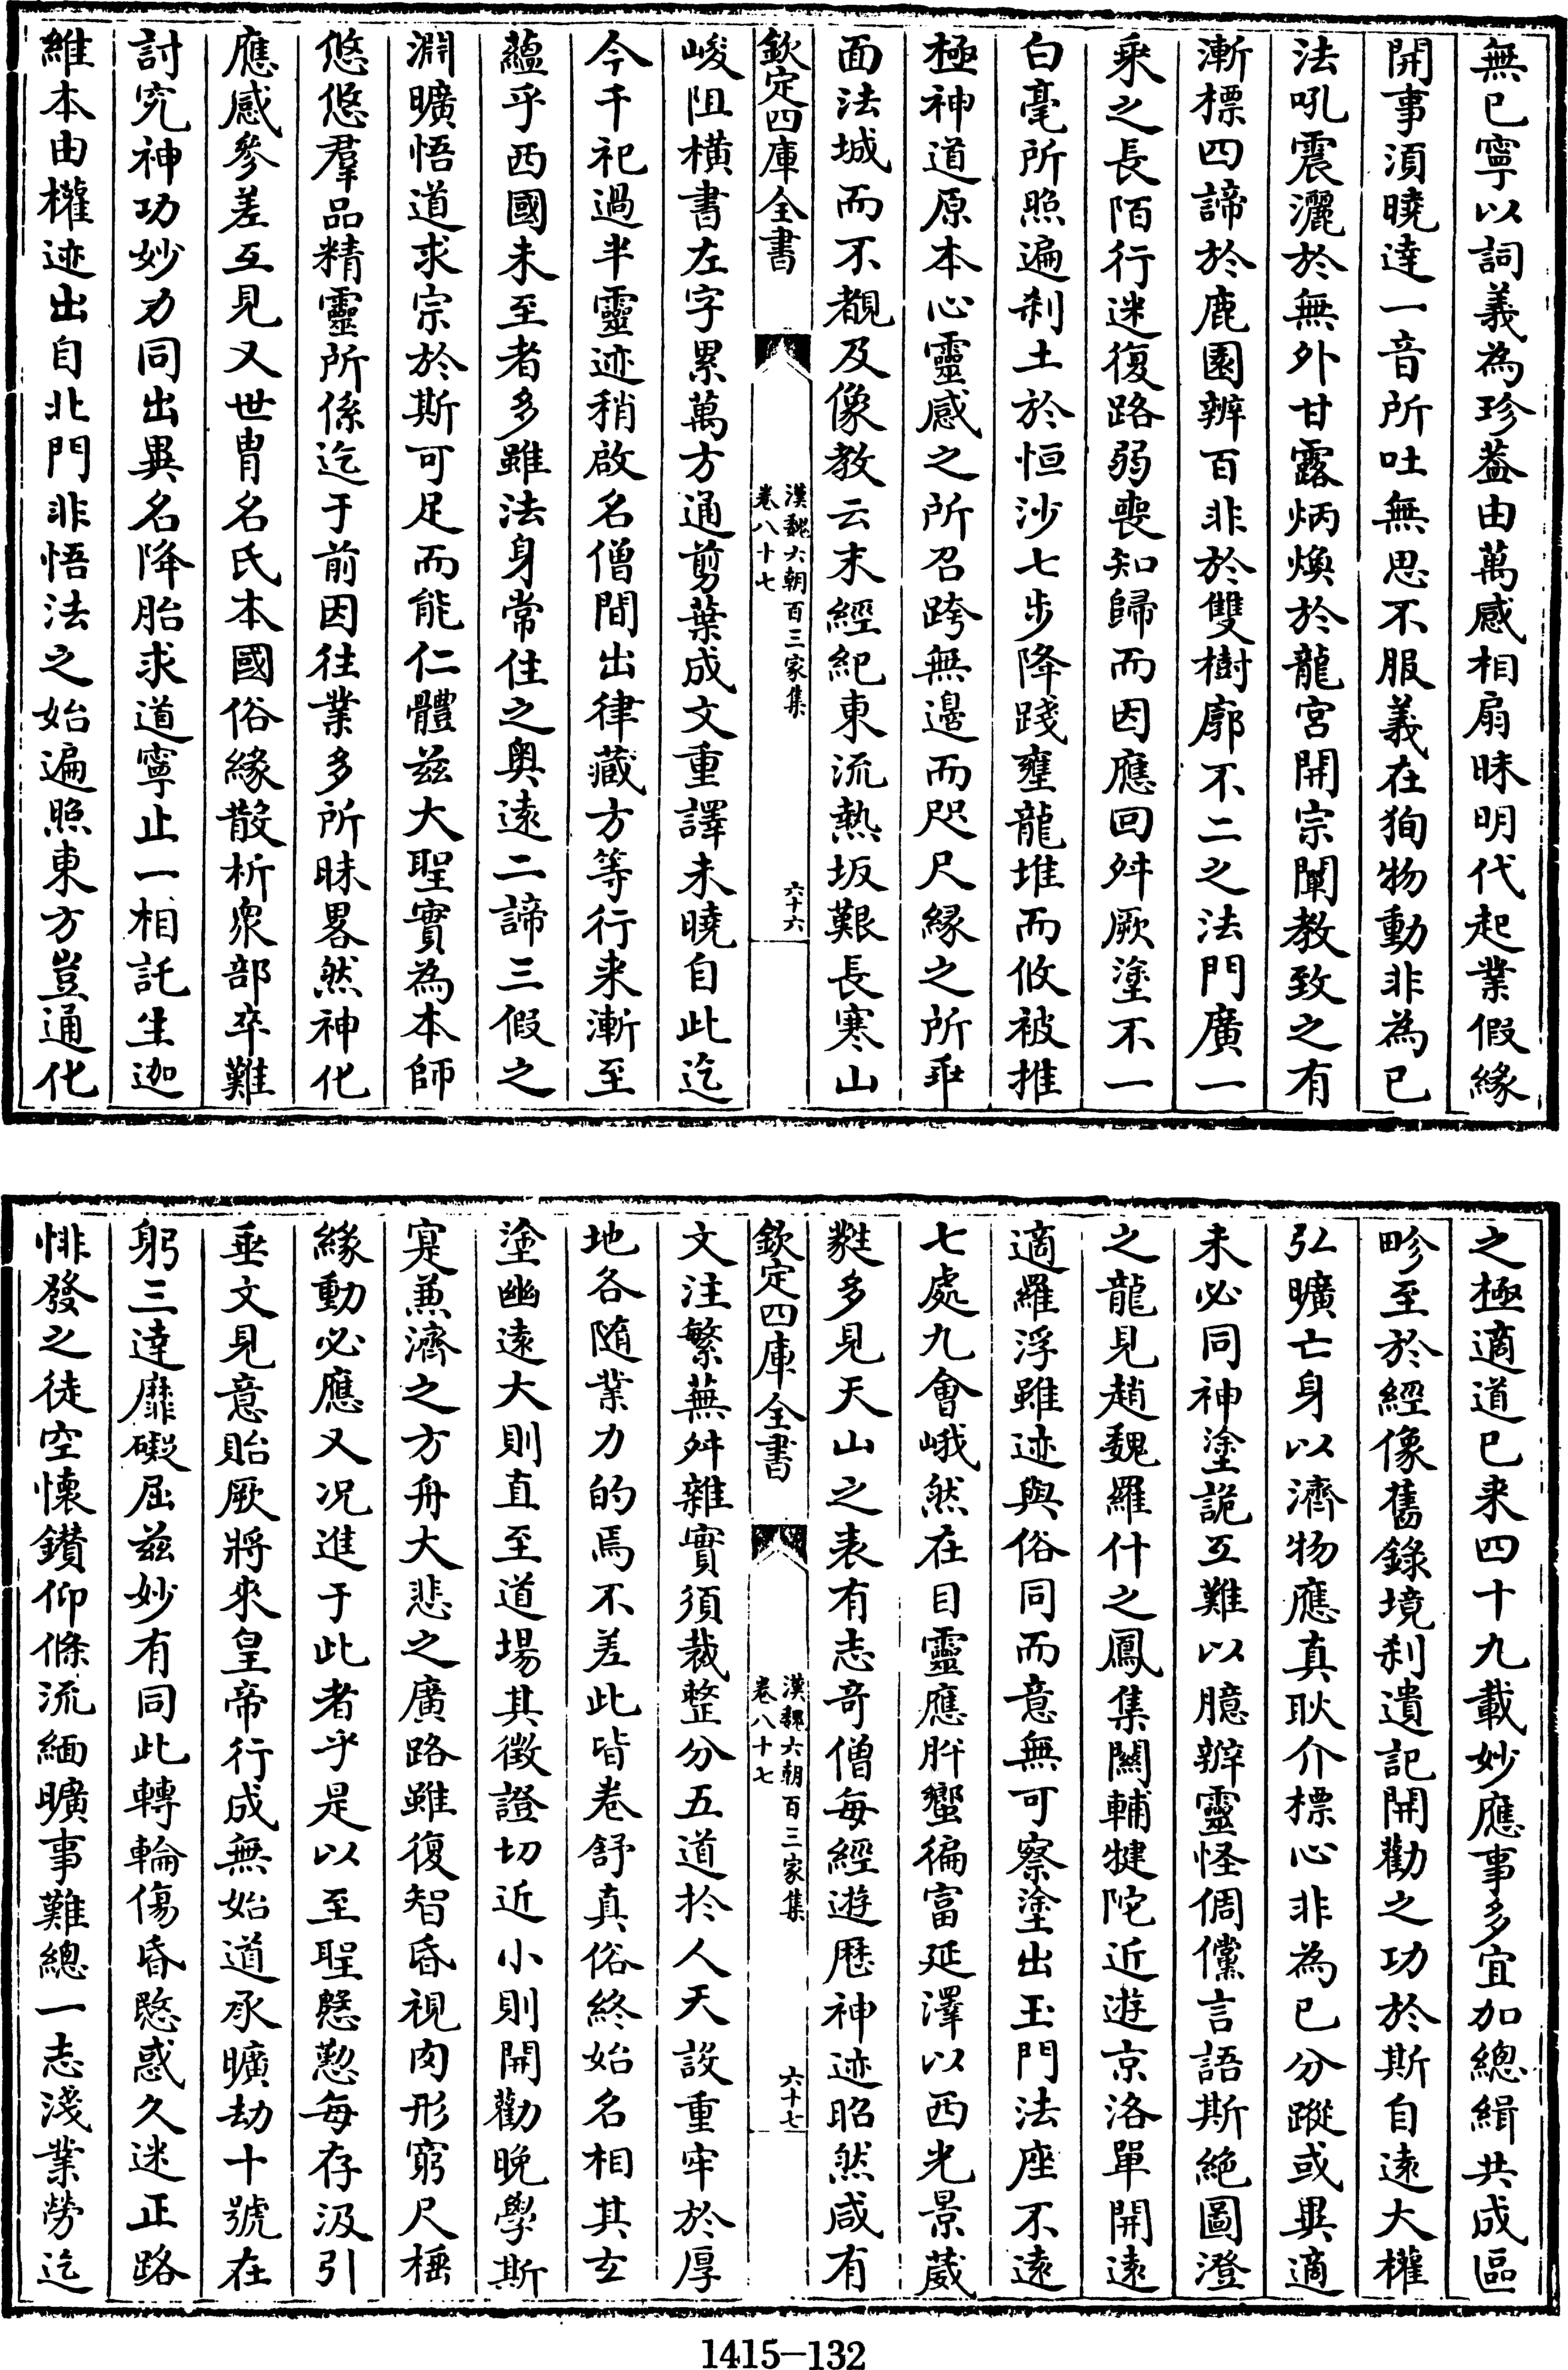 無已寧以詞義為珍葢由萬感相扇昧明代起業假緣
開事須曉達一音所吐無思不服義在狥物動非為已
法吼震灑於無外甘露炳煥於龍宮開宗闡教致之有
漸標四諦於鹿園辨百非於雙樹廓不二之法門廣一
乘之長陌行迷復路弱喪知歸而因應回舛厥塗不一
白毫所照遍刹土於恒沙七步降踐壅龍堆而攸被推
極神道原本心靈感之所召跨無邉而咫尺縁之所乖
面法城而不覩及像教云末經紀東流熱坂艱長寒山
欽定四庫全書
漢魏六朝百三家集
卷八十七
六十六
峻阻横書左字累萬方通剪葉成文重譯未曉自此迄
今千祀過半靈迹稍啟名僧間出律藏方等行来漸至
蘊乎西國未至者多雖法身常住之奥遠二諦三假之
淵曠悟道求宗於斯可足而能仁體兹大聖實為本師
悠悠羣品精靈所係迄于前因往業多所昧畧然神化
應感參差互見又世胄名氏本國俗緣散析衆部卒難
討究神功妙力同出異名降胎求道寧止一相託生迦
維本由權迹出自北門非悟法之始遍照東方豈通化
之極適道已来四十九載妙應事多宜加總緝共成區
畛至於經像舊錄境刹遺記開勸之功於斯自遠大權
弘曠亡身以濟物應真耿介標心非為已分蹤或異適
未必同神塗詭互難以臆辨靈怪倜儻言語斯絶圖澄
之龍見趙魏羅什之鳳集關輔犍陀近遊京洛單開遠
適羅浮雖迹與俗同而意無可察塗出玉門法座不遠
七處九會峨然在目靈應肸蠁徧富延澤以西光景葳
蕤多見天山之表有志奇僧每經遊歴神迹昭然咸有
欽定四庫全書
漢魏六朝百三家集
卷八十七
六十七
文注繁蕪舛雜實須裁整分五道於人天設重牢於厚
地各隨業力的焉不差此皆卷舒真俗終始名相其玄
塗幽遠大則直至道場其徴證切近小則開勸晚學斯
寔兼濟之方舟大悲之廣路雖復智昏視肉形窮尺棰
緣動必應又况進于此者乎是以至聖慇懃每存汲引
垂文見意貽厥將來皇帝行成無始道承曠劫十號在
躬三達靡礙屈兹妙有同此轉輪傷昏愍惑久迷正路
悱發之徒空懷鑽仰條流緬曠事難總一志淺業勞迄
1415-132